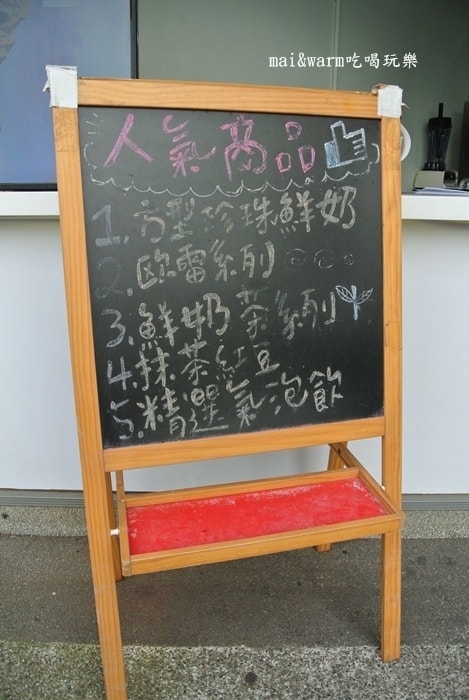 mai&warm吃喝玩樂
人氣商品
1.方型珍珠鮮奶
2.歐蕾系列
3.鮮奶茶系列
4.抹茶紅豆
5.精選氣泡飲